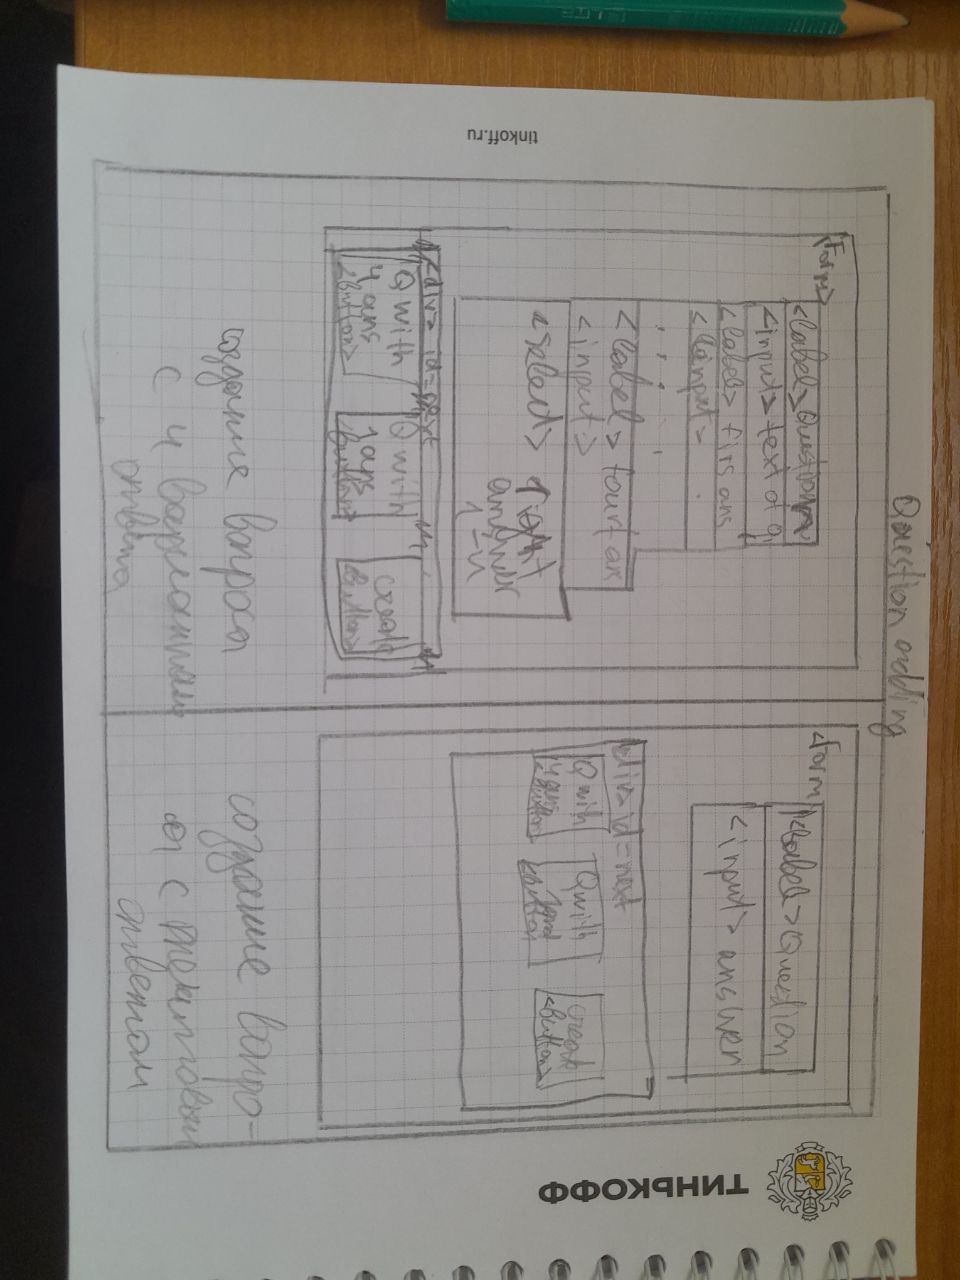 tinkoff.ru
Question adding
<form>
<label> Question
<input> text of q
<label> firs ans
<input>
<label> fourt ans
<input>
<select> right
answer
1-4
<div> id=next
Q with
4 ans
<button>
Q with
1 ans
<button>
create
button>
создание вопроса
с 4 вариантами
ответа
<form>
<label> Question
<input> answer
<div> id=next
Q with
4 ans
<button>
Q with
1 ans
<button>
create
<button>
создание вопро-
са с текстовым
ответом
ТИНЬКОФФ